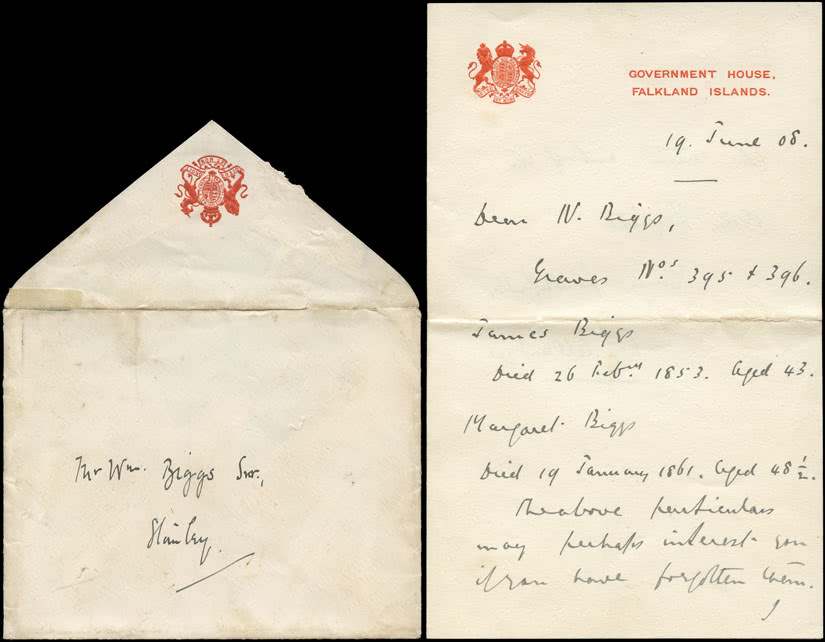 Mr Wm. Biggs Snr.,
Stanley
GOVERNMENT HOUSE,
FALKLAND ISLANDS.
19. June 08.
Dear W. Biggs,
Graves Nos. 395 & 396.
James Biggs
Died 26 Febry. 1853. Aged 43.
Margaret Biggs
Died 19 January 1861. Aged 48 ½.
The above particulars
may perhaps interest you
if you have forgotten them.